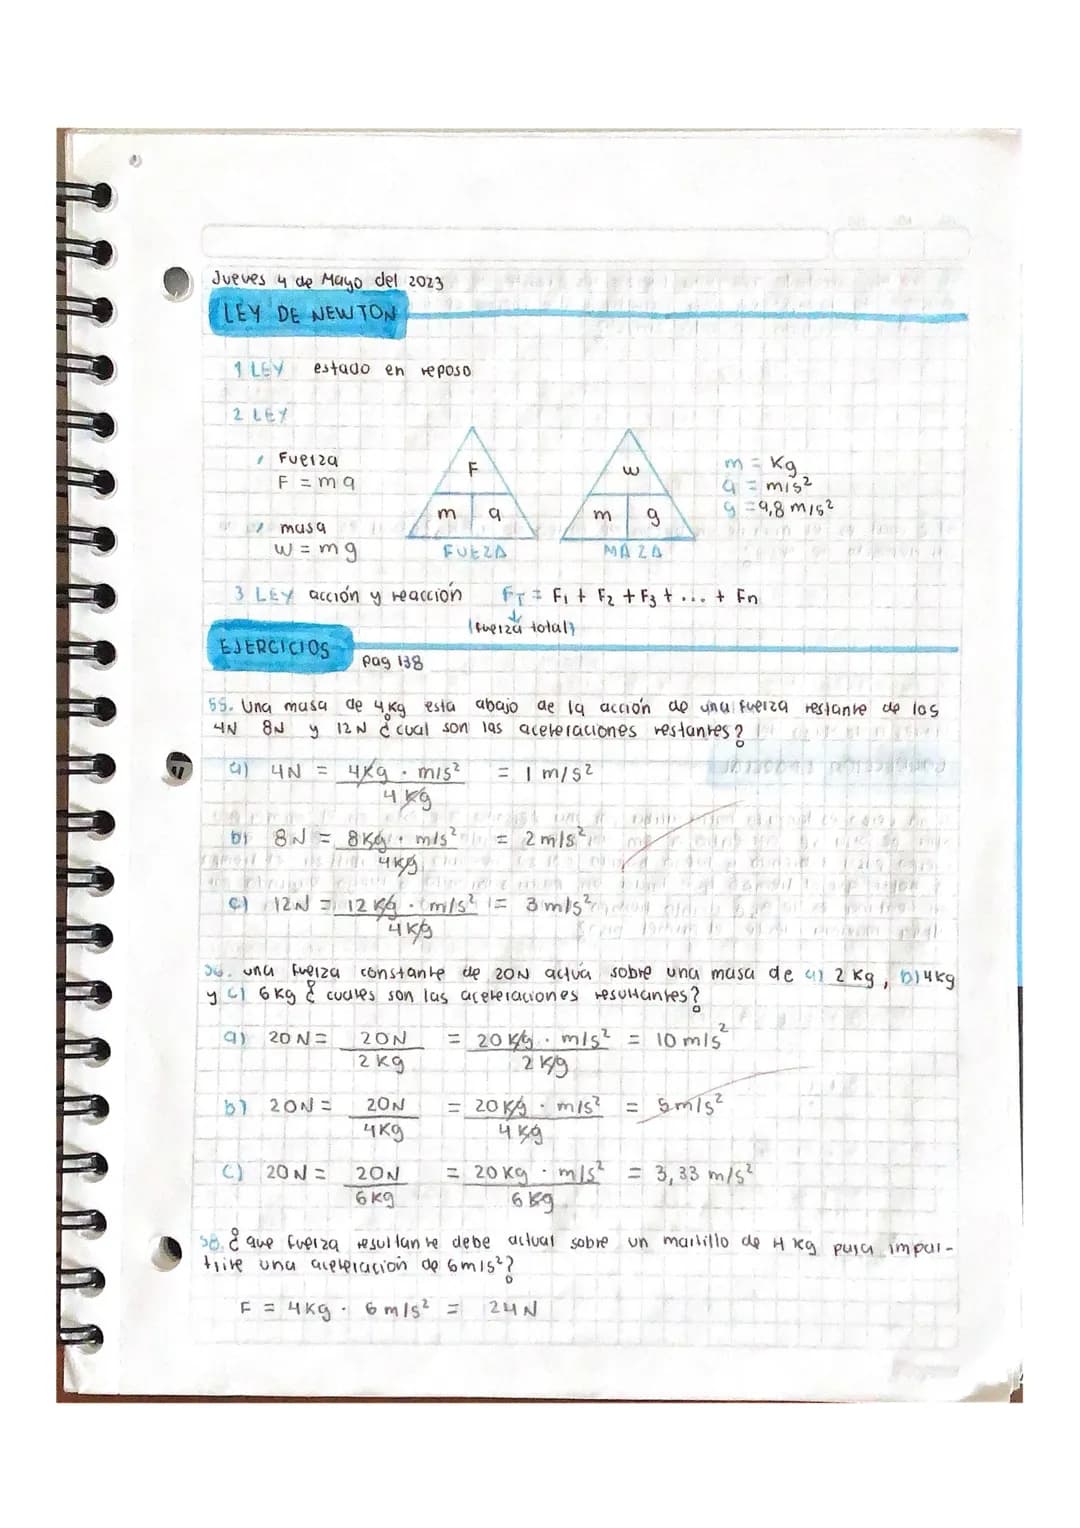 Jueves 4 de Mayo del 2023
LEY DE NEWTON
1 LEY estado en reposo
2 LEY
Fuerza
F = m a
masa
W = m g
F
m a
FUEZA
W
m g
MAZA
m = Kg
a = m/s²
g = 9,8 m/s²
3 LEY acción y reacción F_T = F₁ + F₂ + F₃ + ... + Fn
(fuerza total)
EJERCICIOS
pag 138
55. Una masa de 4 Kg esta abajo de la acción de una fuerza restante de los
4N 8N y 12N ¿cual son las aceleraciones restantes?
a) 4N = 4Kg · m/s² / 4 Kg = 1 m/s²
b) 8N = 8Kg · m/s² / 4Kg = 2 m/s²
c) 12N = 12 Kg · m/s² / 4 Kg = 3 m/s²
56. una fuerza constante de 20N actúa sobre una masa de a) 2 Kg, b) 4Kg
y c) 6 Kg ¿ cuales son las aceleraciones resultantes?
a) 20 N = 20N / 2 Kg = 20 Kg · m/s² / 2 Kg = 10 m/s²
b) 20N = 20N / 4Kg = 20 Kg · m/s² / 4 Kg = 5 m/s²
c) 20 N = 20N / 6 Kg = 20 Kg · m/s² / 6 Kg = 3,33 m/s²
58. ¿ que fuerza resultante debe actual sobre un martillo de 4 Kg para impar-
tirle una aceleración de 6m/s²?
F = 4Kg · 6 m/s² = 24N